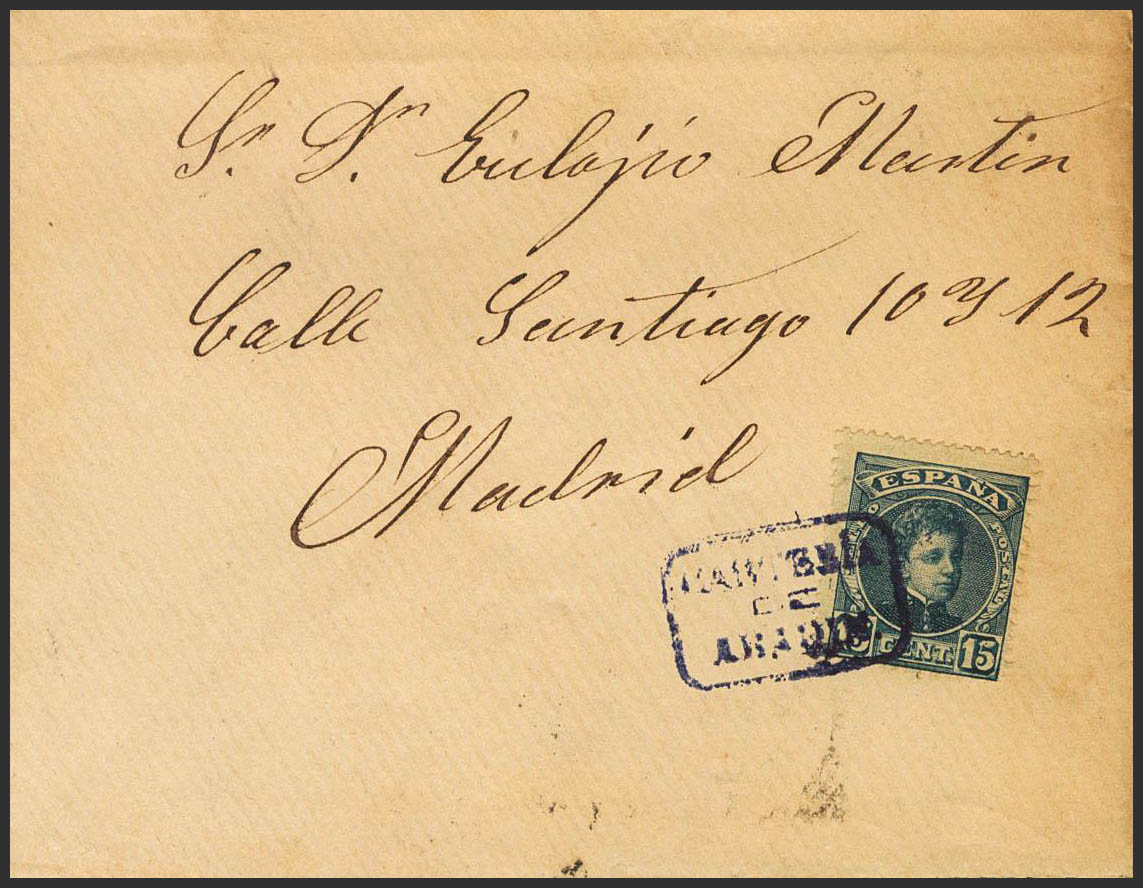 Sr. Dn. Eulojio Martin
Calle Santiago 10 y 12
Madrid
ESPAÑA
CARTERÍA
DE
15 CENT. 15